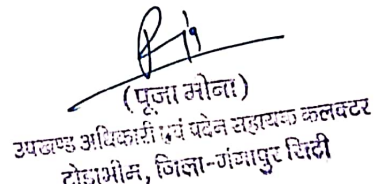 (पूजा मीना)
उपखण्ड अधिकारी एवं पदेन सहायक कलक्टर
टोडाभीम, जिला-गंगापुर सिटी